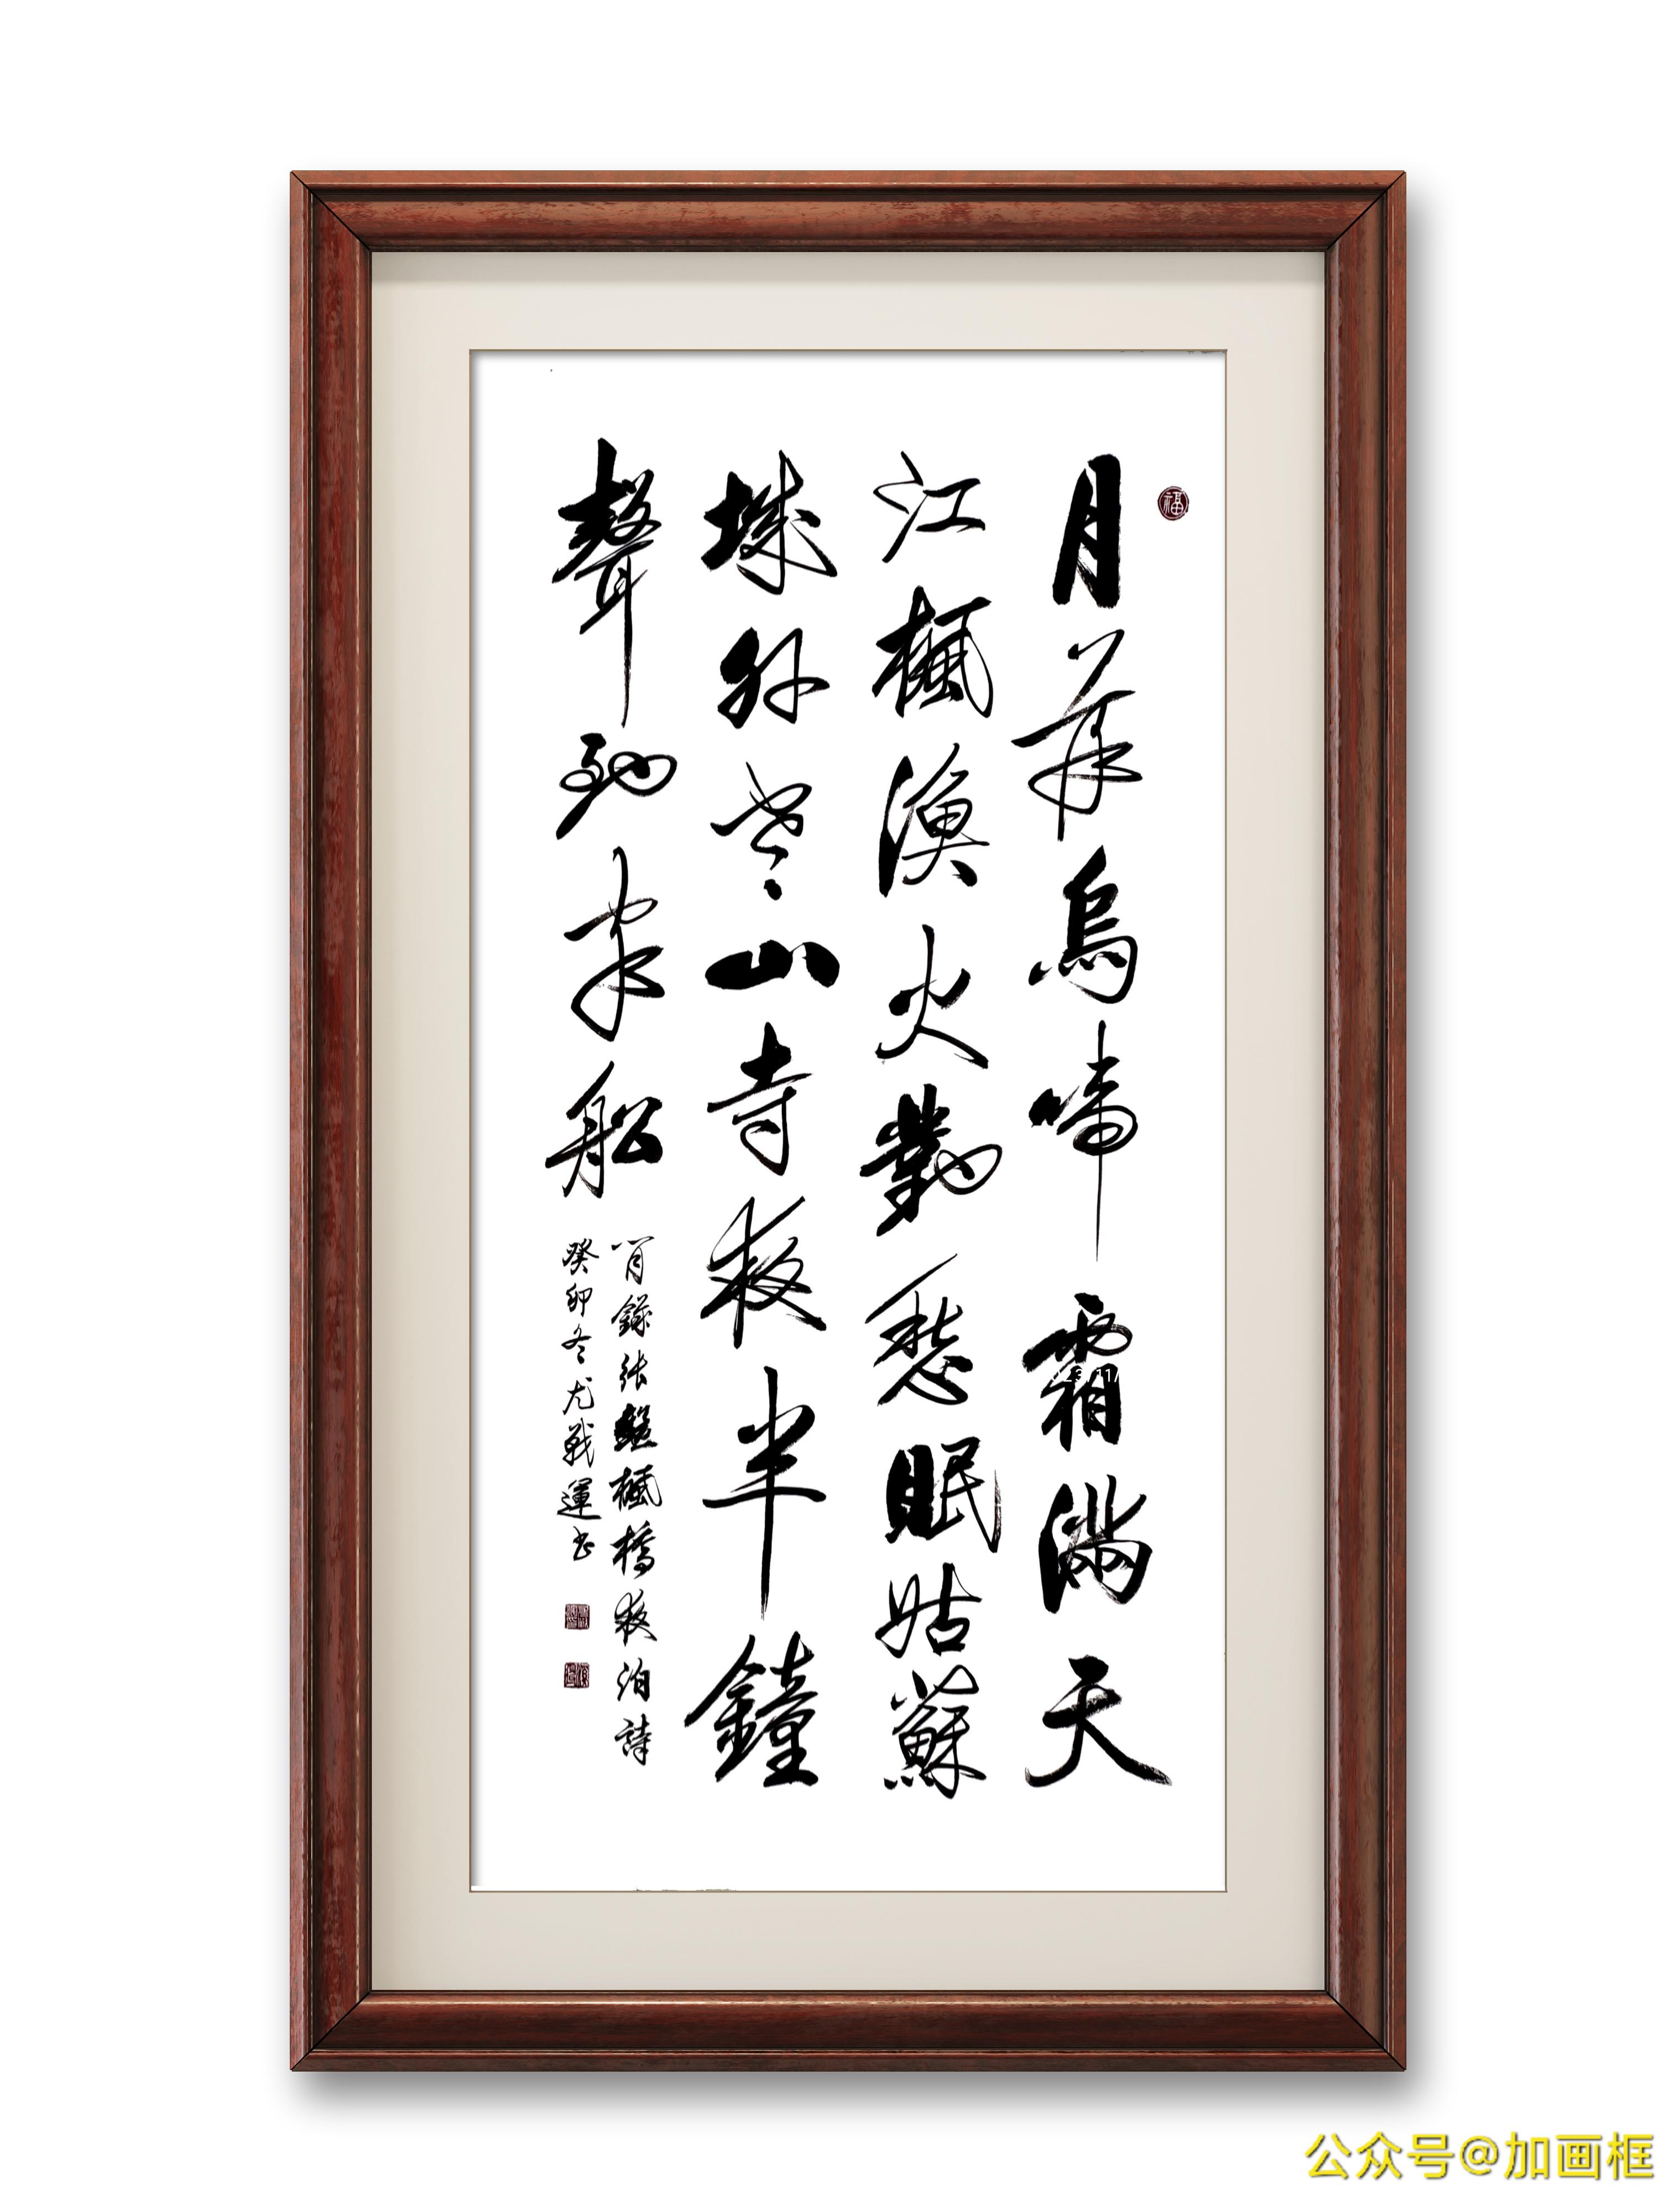 福
月落烏啼霜滿天
江楓漁火對愁眠姑蘇
城外寒山寺夜半鐘
聲到客船
錄張繼楓橋夜泊詩
癸卯冬尤戰運書
公众号@加画框